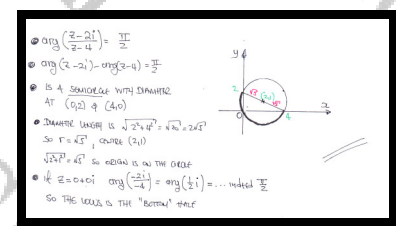 • arg((z-2i)/(z-4)) = π/2
• arg(z-2i) - arg(z-4) = π/2
• IS A SEMICIRCLE WITH DIAMETER
AT (0,2) & (4,0)
• DIAMETER LENGTH IS √(2²+4²) = √20 = 2√5
SO r = √5, CENTRE (2,1)
√(2²+1²) = √5 SO ORIGIN IS ON THE CIRCLE
• if z=0+0i arg(-2i/-4) = arg(½i) = ... indeed π/2
SO THE LOCUS IS THE "BOTTOM" HALF
y
2
√5
(2,1)
√5
O
4
x